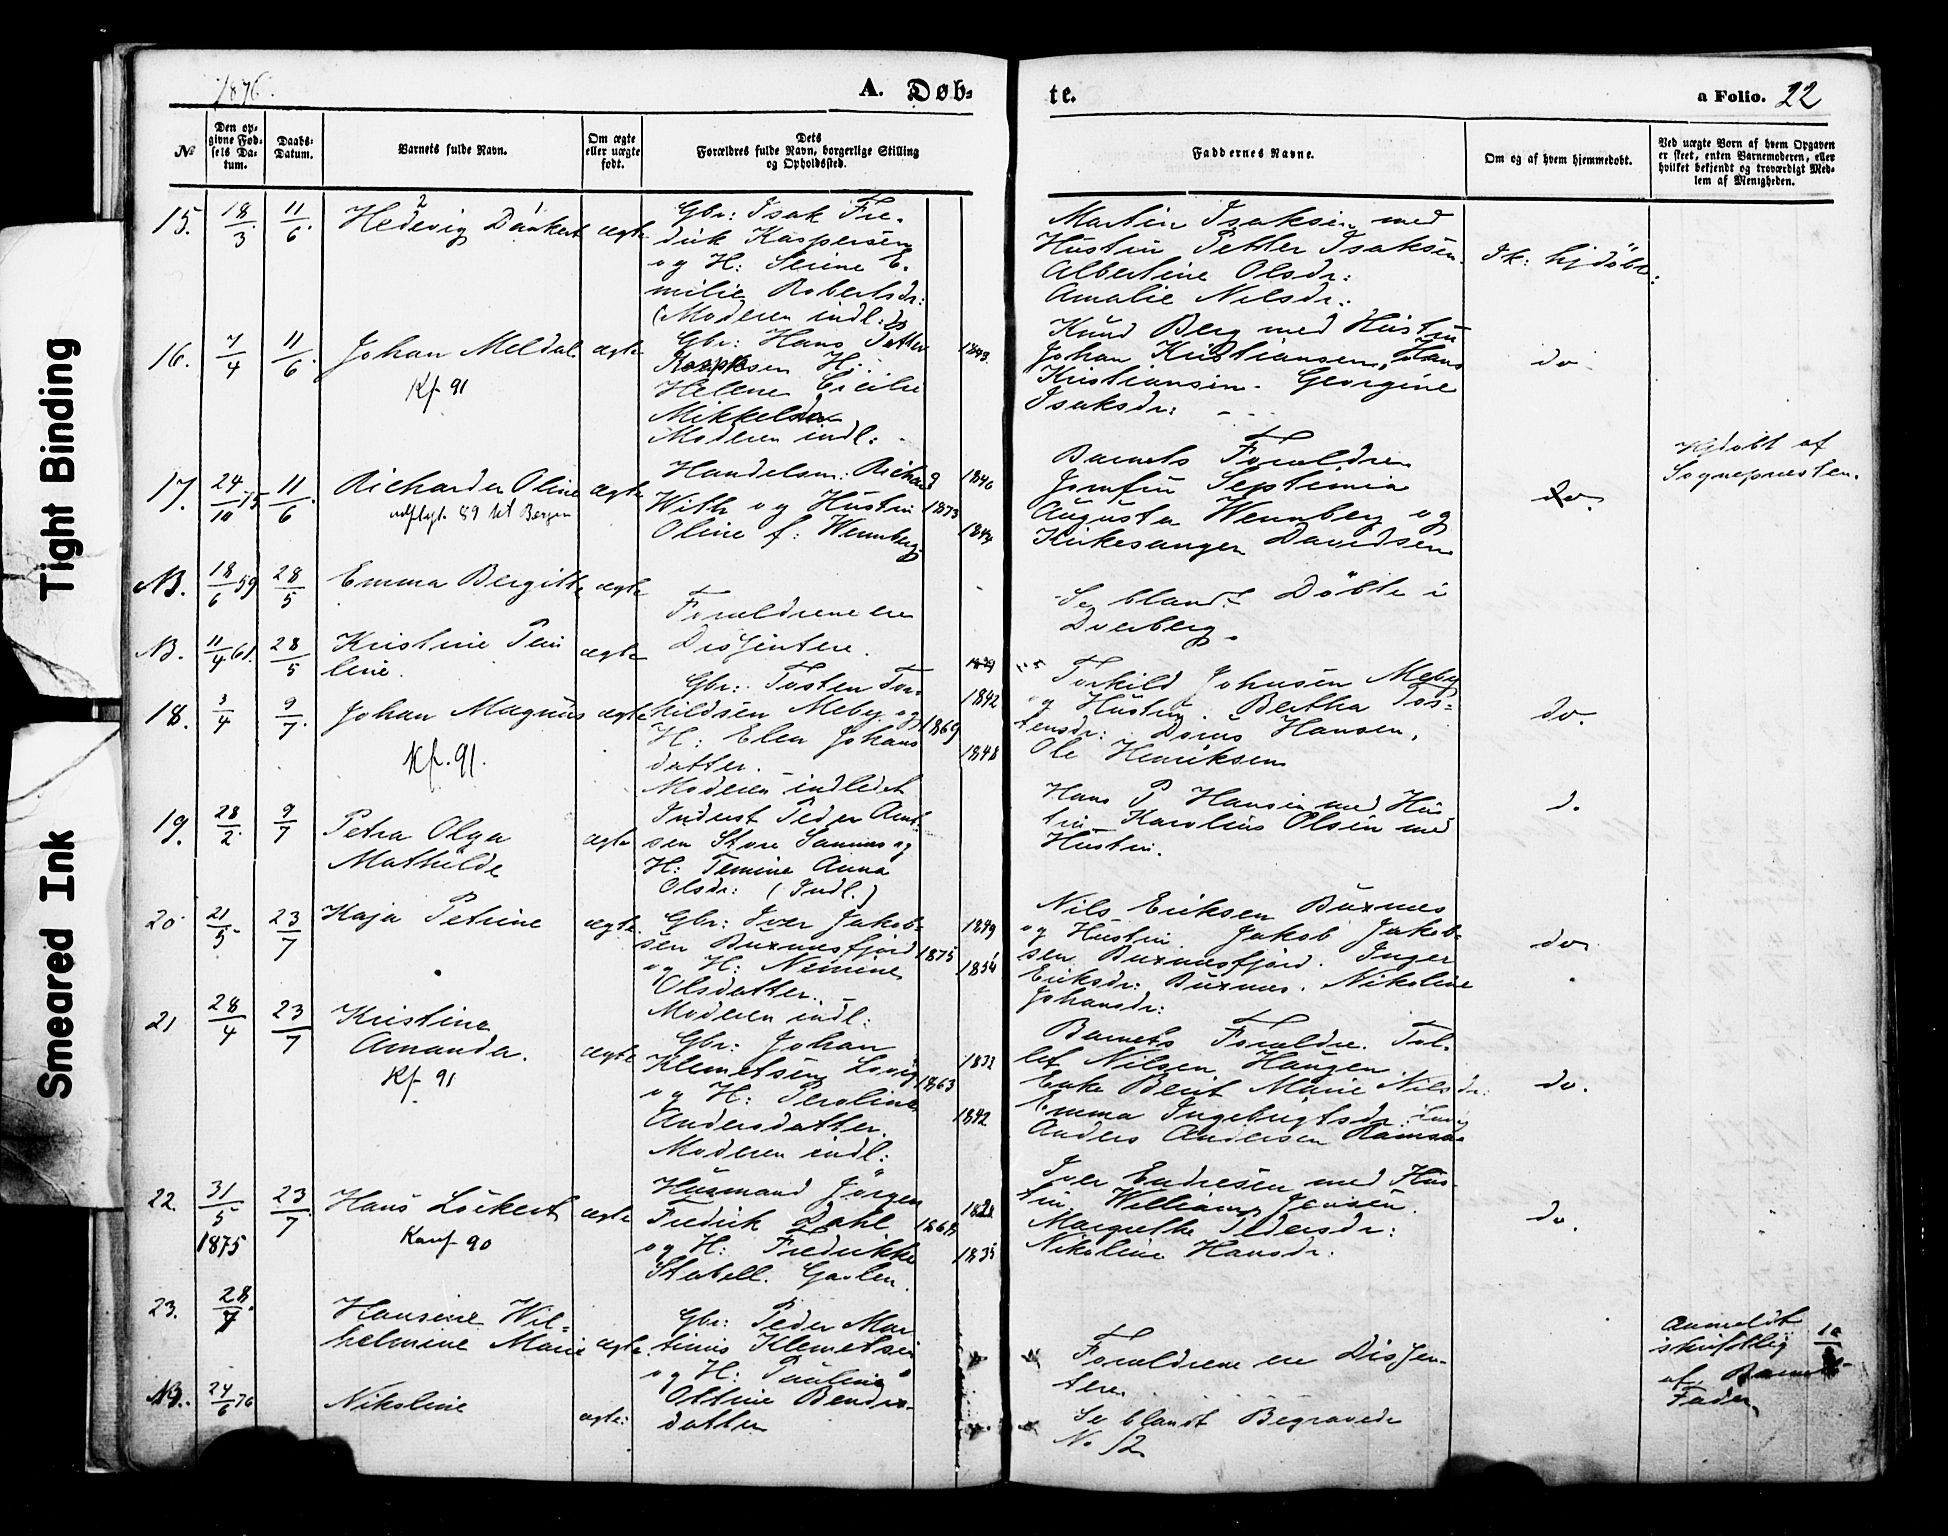 1876.
A. Døb-
te.
a Folio. 22
№
Den op-
givne Fød-
sels Da-
tum.
Daabs-
Datum.
Barnets fulde Navn.
Om ægte
eller uægte
født.
Dets
Forældres fulde Navn, borgerlige Stilling
og Opholdssted.
Faddernes Navne.
Om og af hvem hjemmedøbt.
Ved uægte Børn af hvem Opgaven
er skeet, enten Barnemoderen, eller
hvilket bekjendt og troværdigt Med-
lem af Menigheden.
15. 18/3 11/6. Hedevig Dánkert ægte
Gbr: Isak Fre-
drik Kaspersen
og H: Serine E-
milie Robertsdr:
(Moderen indl:
Martin Isaksen med
Hustru Petter Isaksen.
Albertine Olsdr:
Amalie Nilsdr:
Ik: hjdöbt:
16. 7/4 11/6. Johan Meldal ægte
Kf. 91
Gbr: Hans Petter
H:
Helene Cecilie
Mikkelsdr
Moderen indl:
1843.
Knud Berg med Hustru
Johan Kristiansen, Hans
Kristiansen. Georgine
Isaksdr:
do
17. 24/10 75 11/6. Richarda Oline ægte
udflyt. 89 til Bergen
Handelsm: Richard
With og Hustru
Oline f: Wennberg
1873
1846
1844
Barnets Forældre
Jomfru Septimia
Augusta Wennberg og
Kirkesanger Davidsen
do.
Hjdøbt af
Sognepresten.
NB. 18/6 59 28/5 Emma Bergitte ægte
NB. 11/4 61. 28/5 Kristine Pau
line. ægte
Forældrene ere
Dissentere.
Se blandt Döbte i
Dverberg.
18. 3/4 9/7. Johan Magnus ægte
Kf. 91.
Gbr: Tosten Tor-
kildsen Meby og
H: Elen Johans
datter.
Moderen indledet
1869
1842
1848
Torkild Johnsen Meby
og Hustru. Bertha Tos-
tensdr: Dorus Hansen,
Ole Henriksen
do.
19. 28/2. 9/7 Petra Olga
Mathilde ægte
Inderst Peder Arnt-
sen Store og
H: Anna
Olsdr: (Indl.)
Hans P Hansen med Hus
tru Karolius Olsen med
Hustru.
d.
20 21/5 23/7 Kaja Petrine ægte
Gbr: Iver Jakob-
sen Buxnesfjord
og H:
Olsdatter.
Moderen indl:
1875
1849
1854
Nils Eriksen Buxnes
og Hustru. Jakob Jakob-
sen Buxnesfjord. Inger
Eriksdr: Buxnes. Nikoline
Johansdr:
do.
21 28/4 23/7 Kristine
Amanda. ægte
Kf. 91
Gbr: Johan
Klemetsen
og H: Peroline
Andersdatter
Moderen indl:
1863
1832
1842
Barnets Forældre. Tol-
lef Nilsen Haugen
Enke Berit Marie Nilsdr:
Emma Ingebrigtsdr:
Anders Andersen Ramsaa
do.
22. 31/5 1875 23/7. Hans Löckert ægte
Konf. 90
Husmand Jörgen
Fredrik Dahl
og H: Fredrikke
Stabell.
1835
Iver Endresen med Hus-
tru. William Jensen.
Margrethe Pedersdr:
Nikoline Hansdr:
do.
23. 28/7. Hansine Wil-
helmine Marie ægte
Gbr: Peder Mar
tinus Klemetsen
og H: Pauline
Ottine Bendix-
datter
Forældrene ere Dissen-
tere
Anmeldt
skriftlig
af Barnets
Fader
NB. 24/6 76 Nikoline ægte:
Se blandt Begravede
No 12
Tight Binding
Smeared Ink